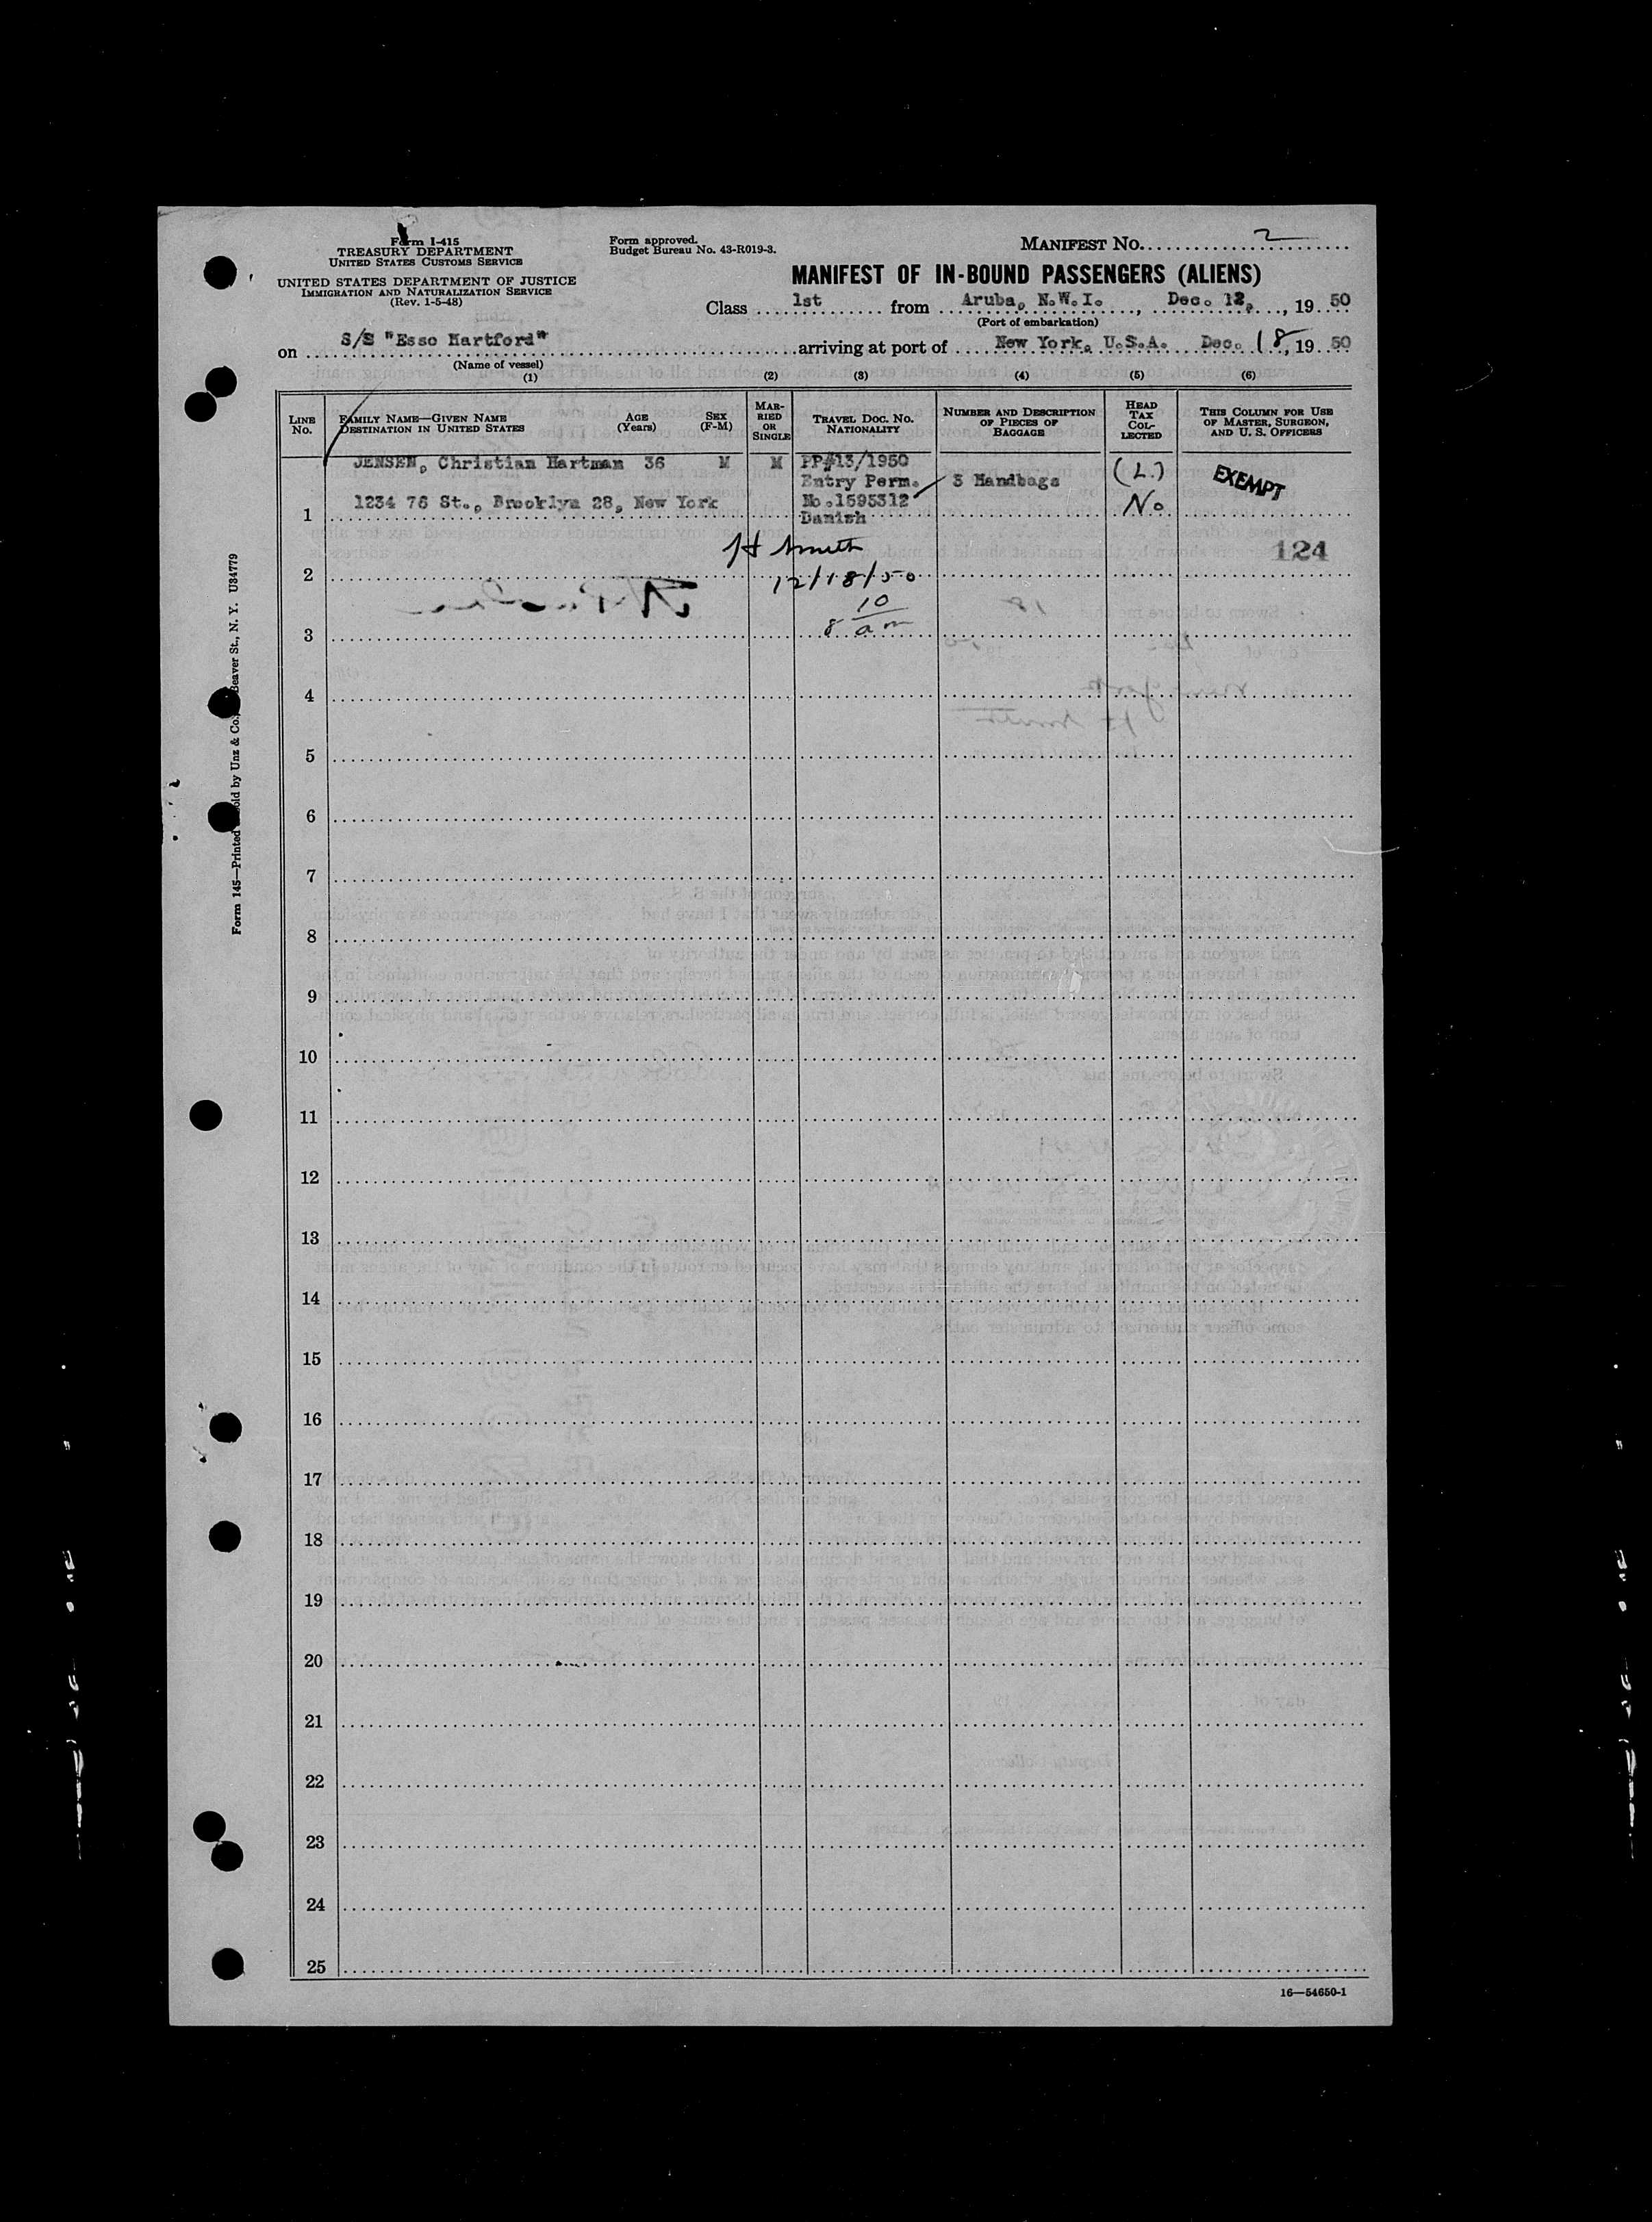 Form I-415
TREASURY DEPARTMENT
UNITED STATES CUSTOMS SERVICE
UNITED STATES DEPARTMENT OF JUSTICE
IMMIGRATION AND NATURALIZATION SERVICE
(Rev. 1-5-48)
Form approved.
Budget Bureau No. 43-R019-3.
MANIFEST NO. 2
MANIFEST OF IN-BOUND PASSENGERS (ALIENS)
Class 1st from Aruba, N.W.I., Dec. 12, 1950
(Port of embarkation)
on S/S "Esso Hartford" arriving at port of New York, U.S.A. Dec. 18, 1950
(Name of vessel)
(1) (2) (3) (4) (5) (6)
LINE No.
FAMILY NAME—GIVEN NAME
DESTINATION IN UNITED STATES
AGE (Years)
SEX (F-M)
MARRIED OR SINGLE
TRAVEL DOC. NO. NATIONALITY
NUMBER AND DESCRIPTION OF PIECES OF BAGGAGE
HEAD TAX COLLECTED
THIS COLUMN FOR USE OF MASTER, SURGEON, AND U. S. OFFICERS
JENSEN, Christian Hartman 36 M M PP#13/1950
Entry Perm. 3 Handbags (L.) EXEMPT
1234 76 St., Brooklyn 28, New York No.1595312 No
1 Danish
Smith 124
2 12/18/50
10
3 8 am
4
5
6
7
8
9
10
11
12
13
14
15
16
17
18
19
20
21
22
23
24
25
16—54650-1
Form 145—Printed
old by Unz & Co.,
Beaver St., N. Y. U34779